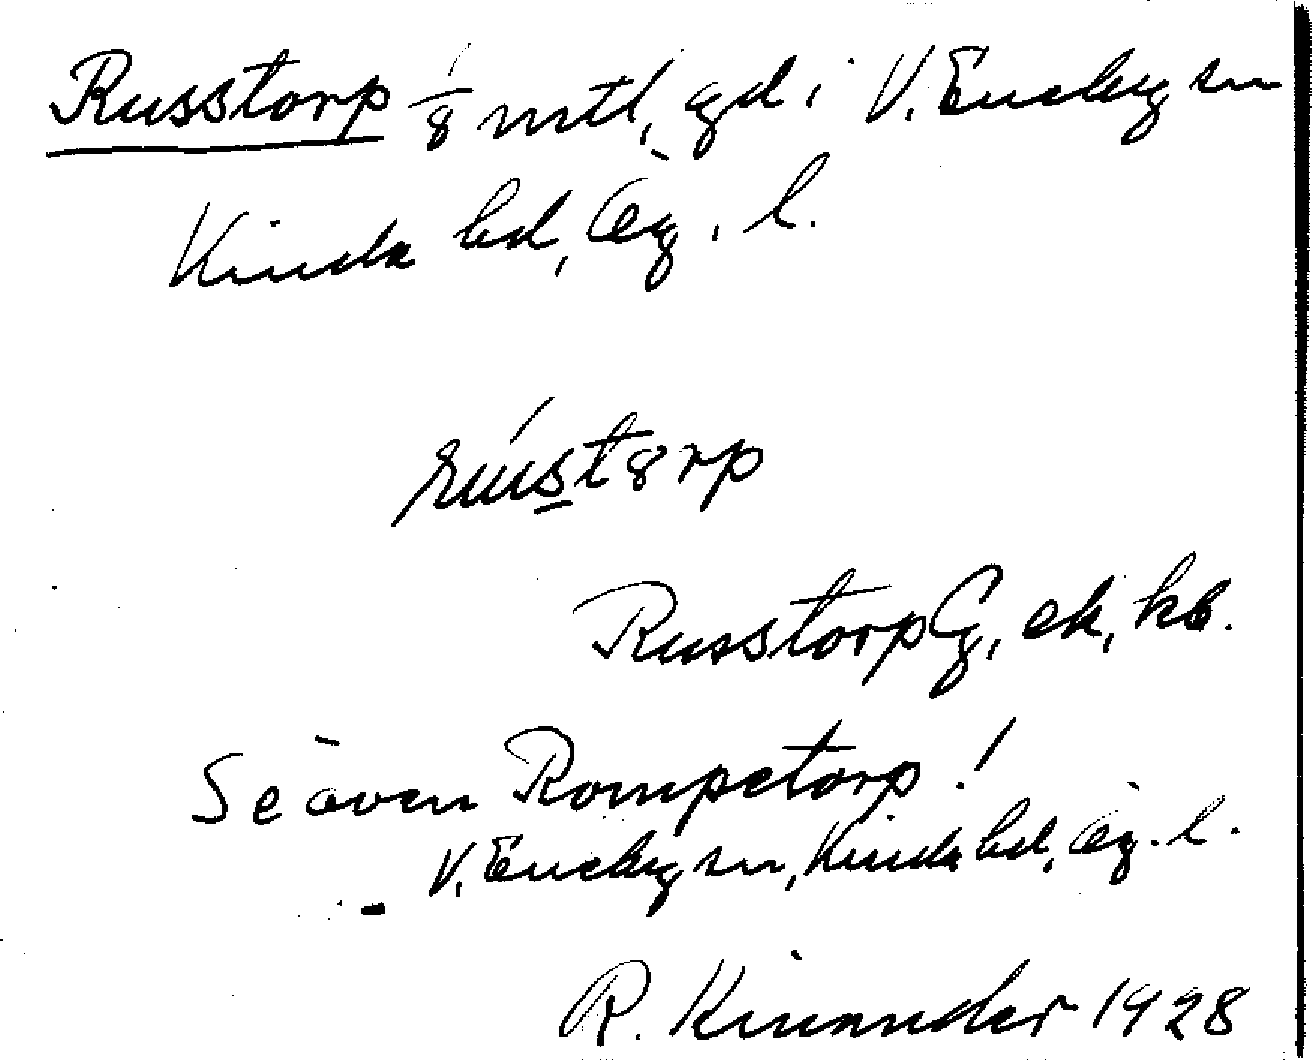 Russtorp 1/8 mtl, gd i V. Eneby sn
Kinda hd, Ög. l.
rústørp
Russtorp G, ek, kb.
Se även Rompetorp!
V. Eneby sn, Kinda hd, Ög. l.
R. Kinander 1928